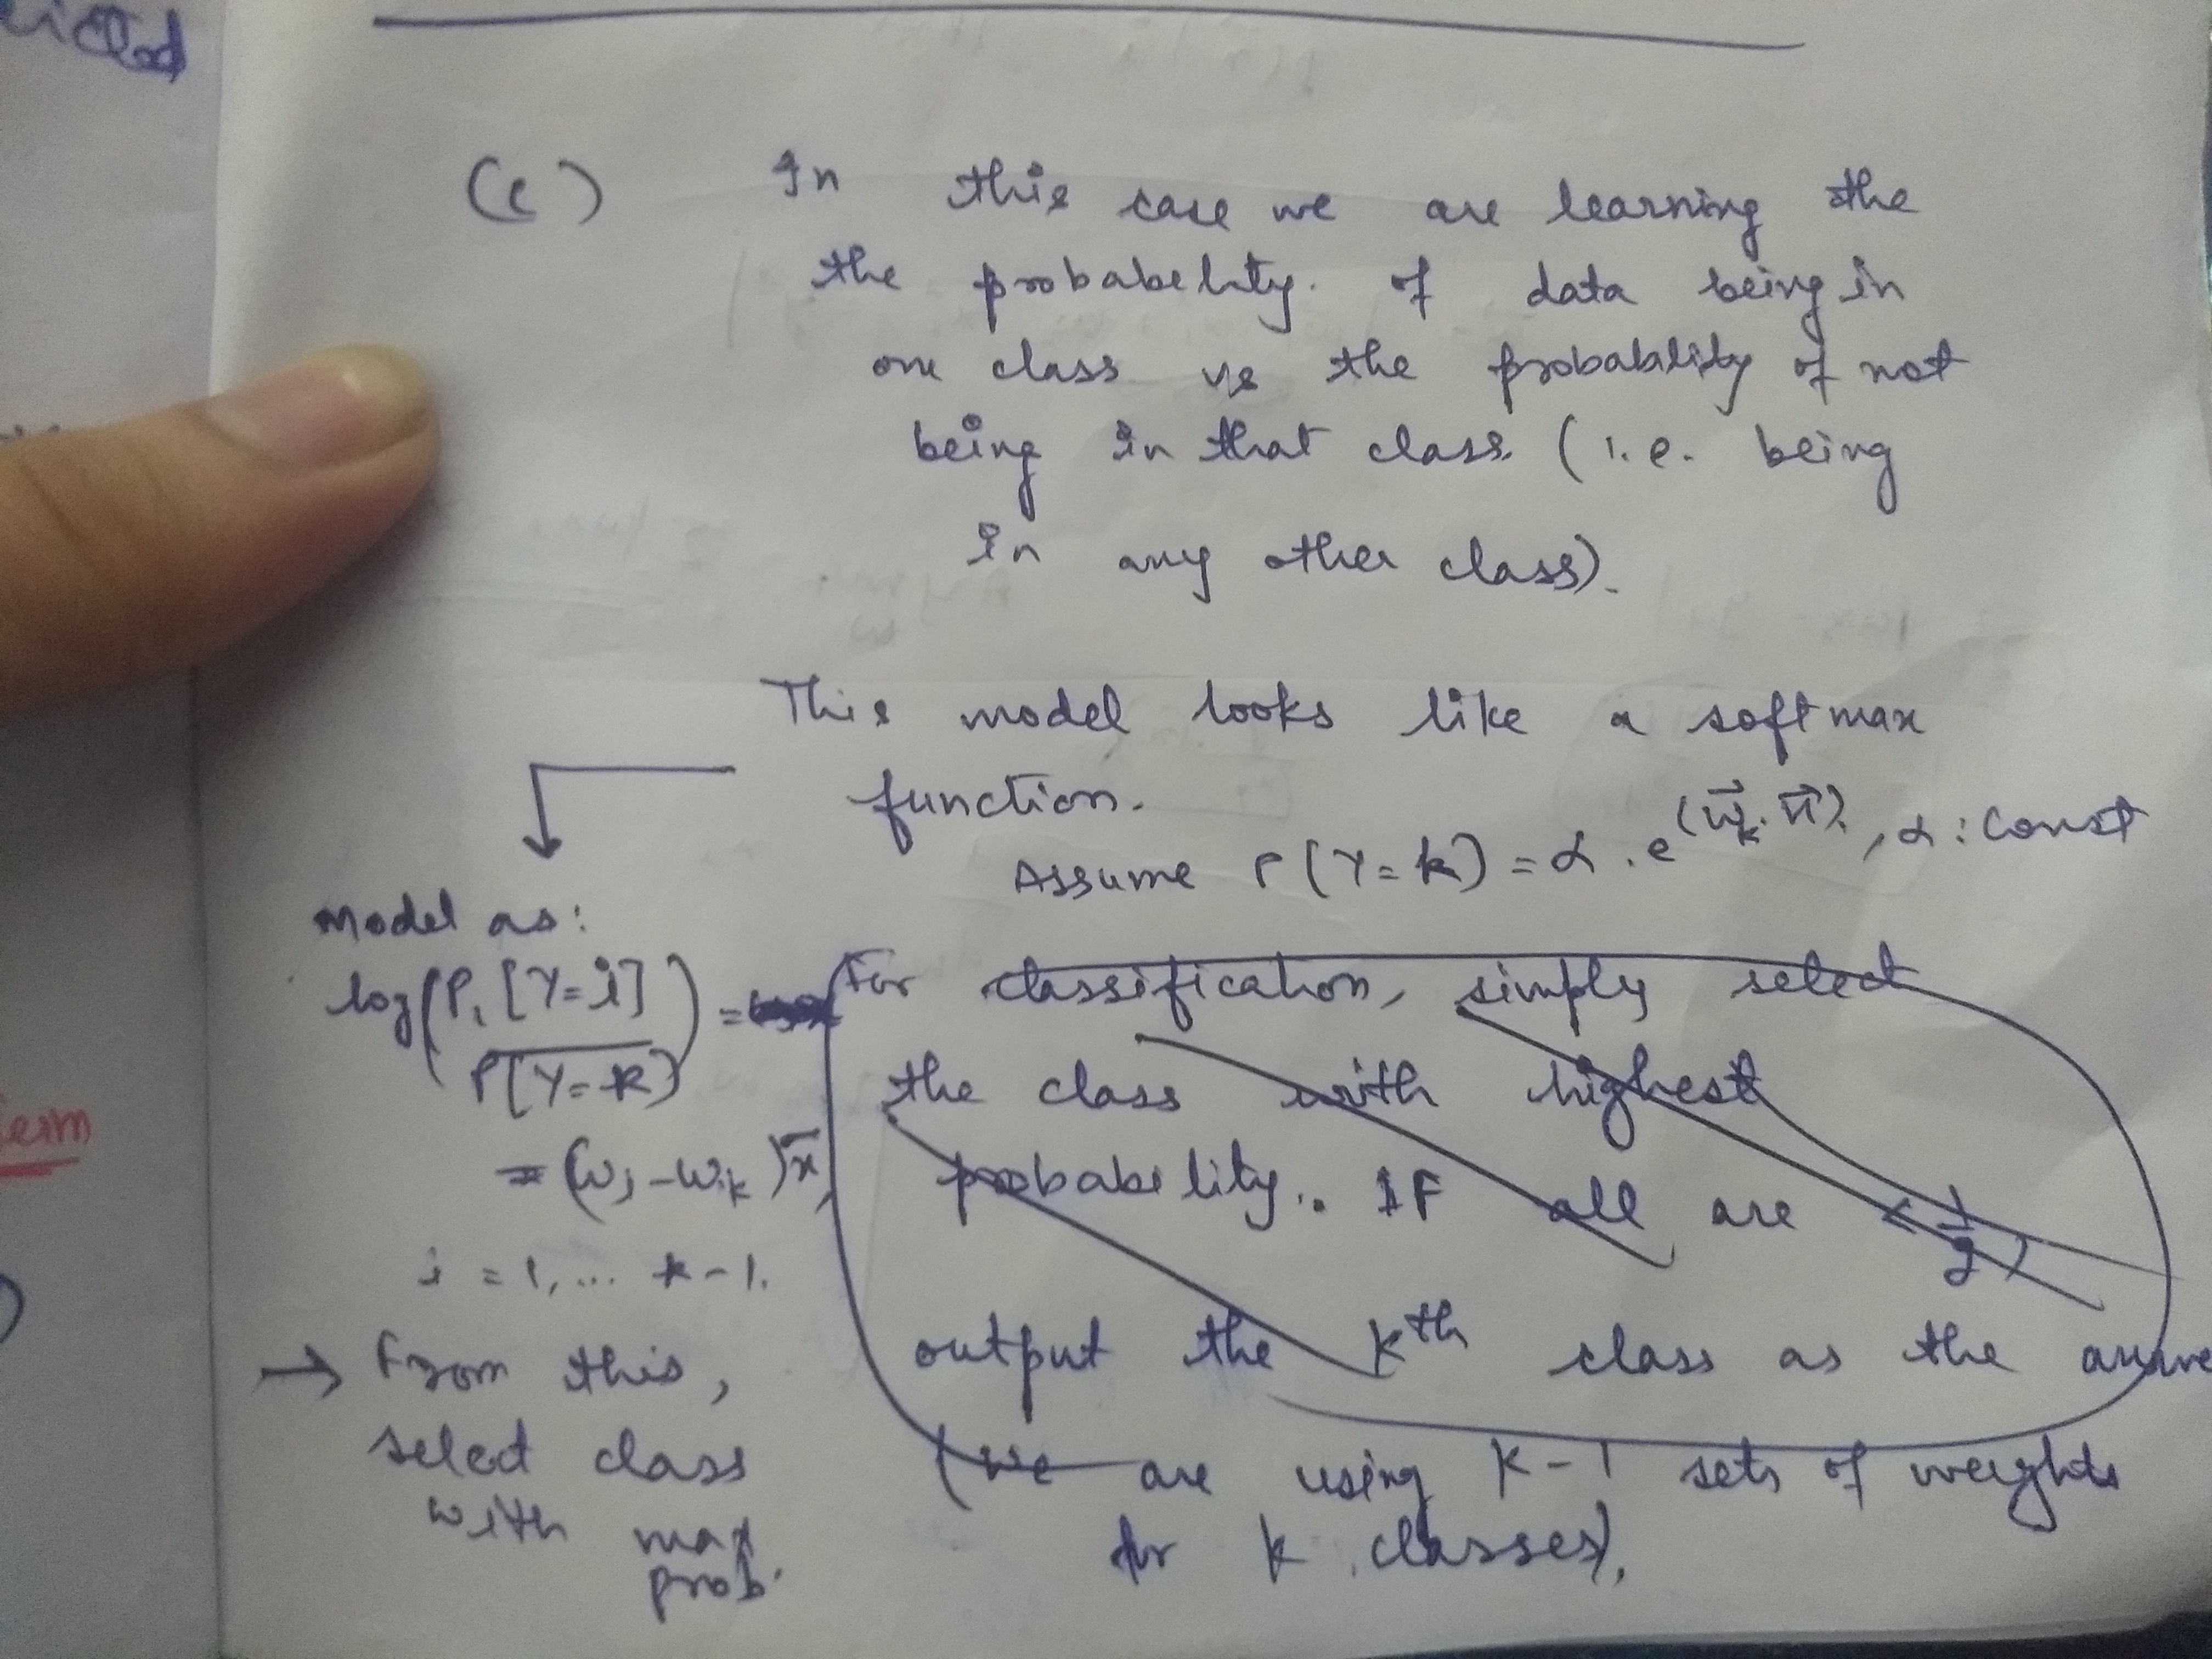 (c) In this case we are learning the
the probabelity. of data being in
one class vs the probability of not
being in that class. (i.e. being
in any other class).
This model looks like a softmax
function.
Assume P(Y=k) = α . e^(w⃗k. x⃗), α : const
Model as:
log(P, [Y=i] / P[Y=k]) =
= (wj - wk) x⃗,
i = 1, ... k-1.
→ From this,
select class
with max
prob.
For classification, simply select
the class with highest
probability.. IF all are < 1/2)
output the kth class as the
(we are using k-1 sets of weights
for k classes).
term